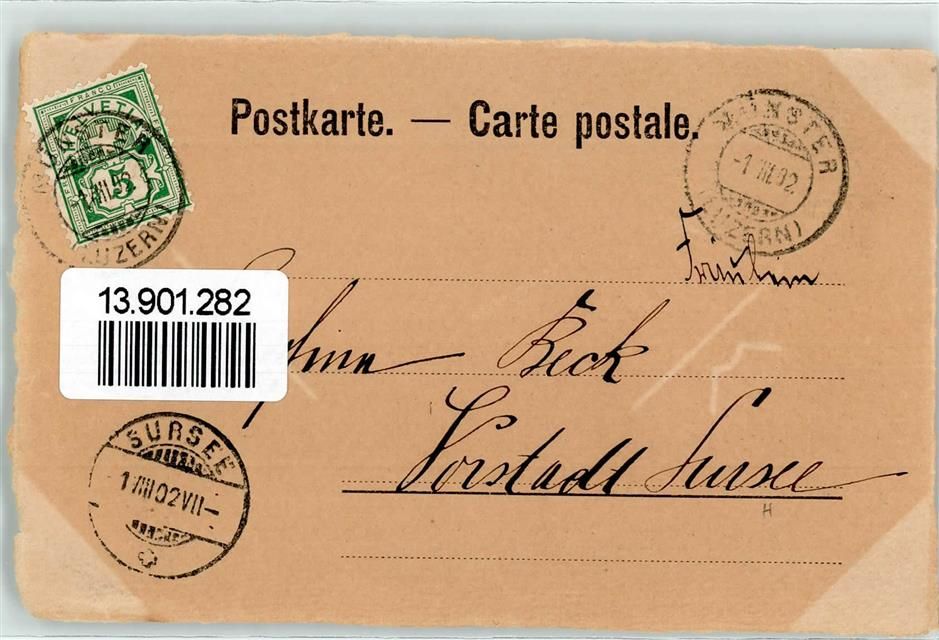 Postkarte. — Carte postale.
FRANCO
HELVETIA
5
LUZERN
MÜNSTER
-1 III.02.
(LUZERN)
Fräulein
13.901.282
Beck
Vorstadt Sursee
SURSEE
1 VIII 02 VII-
H